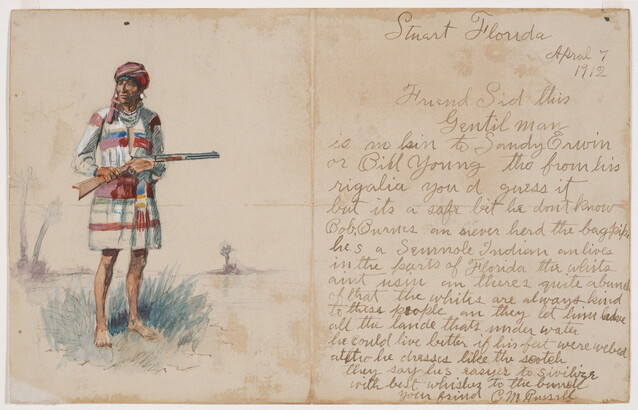 Stuart Florida
April 7
1912
Friend Sid this
Gentil man
is no kin to Sandy Erwin
or Bill Young tho from his
rigalia you d guess it
but its a safe bet he dont know
Bob Burnes an never herd the bag pipe
he,s a Semnole Indian an lives
in the parts of Florida the whits
aint usin an theres quite a bunch
of that the whites are always kind
to these people an they let him have
all the lande thats under water
he could live better if his feet were webed
altho he dresses like the scotch
they say he,s easyer to sivilize
with best whiskey to the
your frind C M Russell